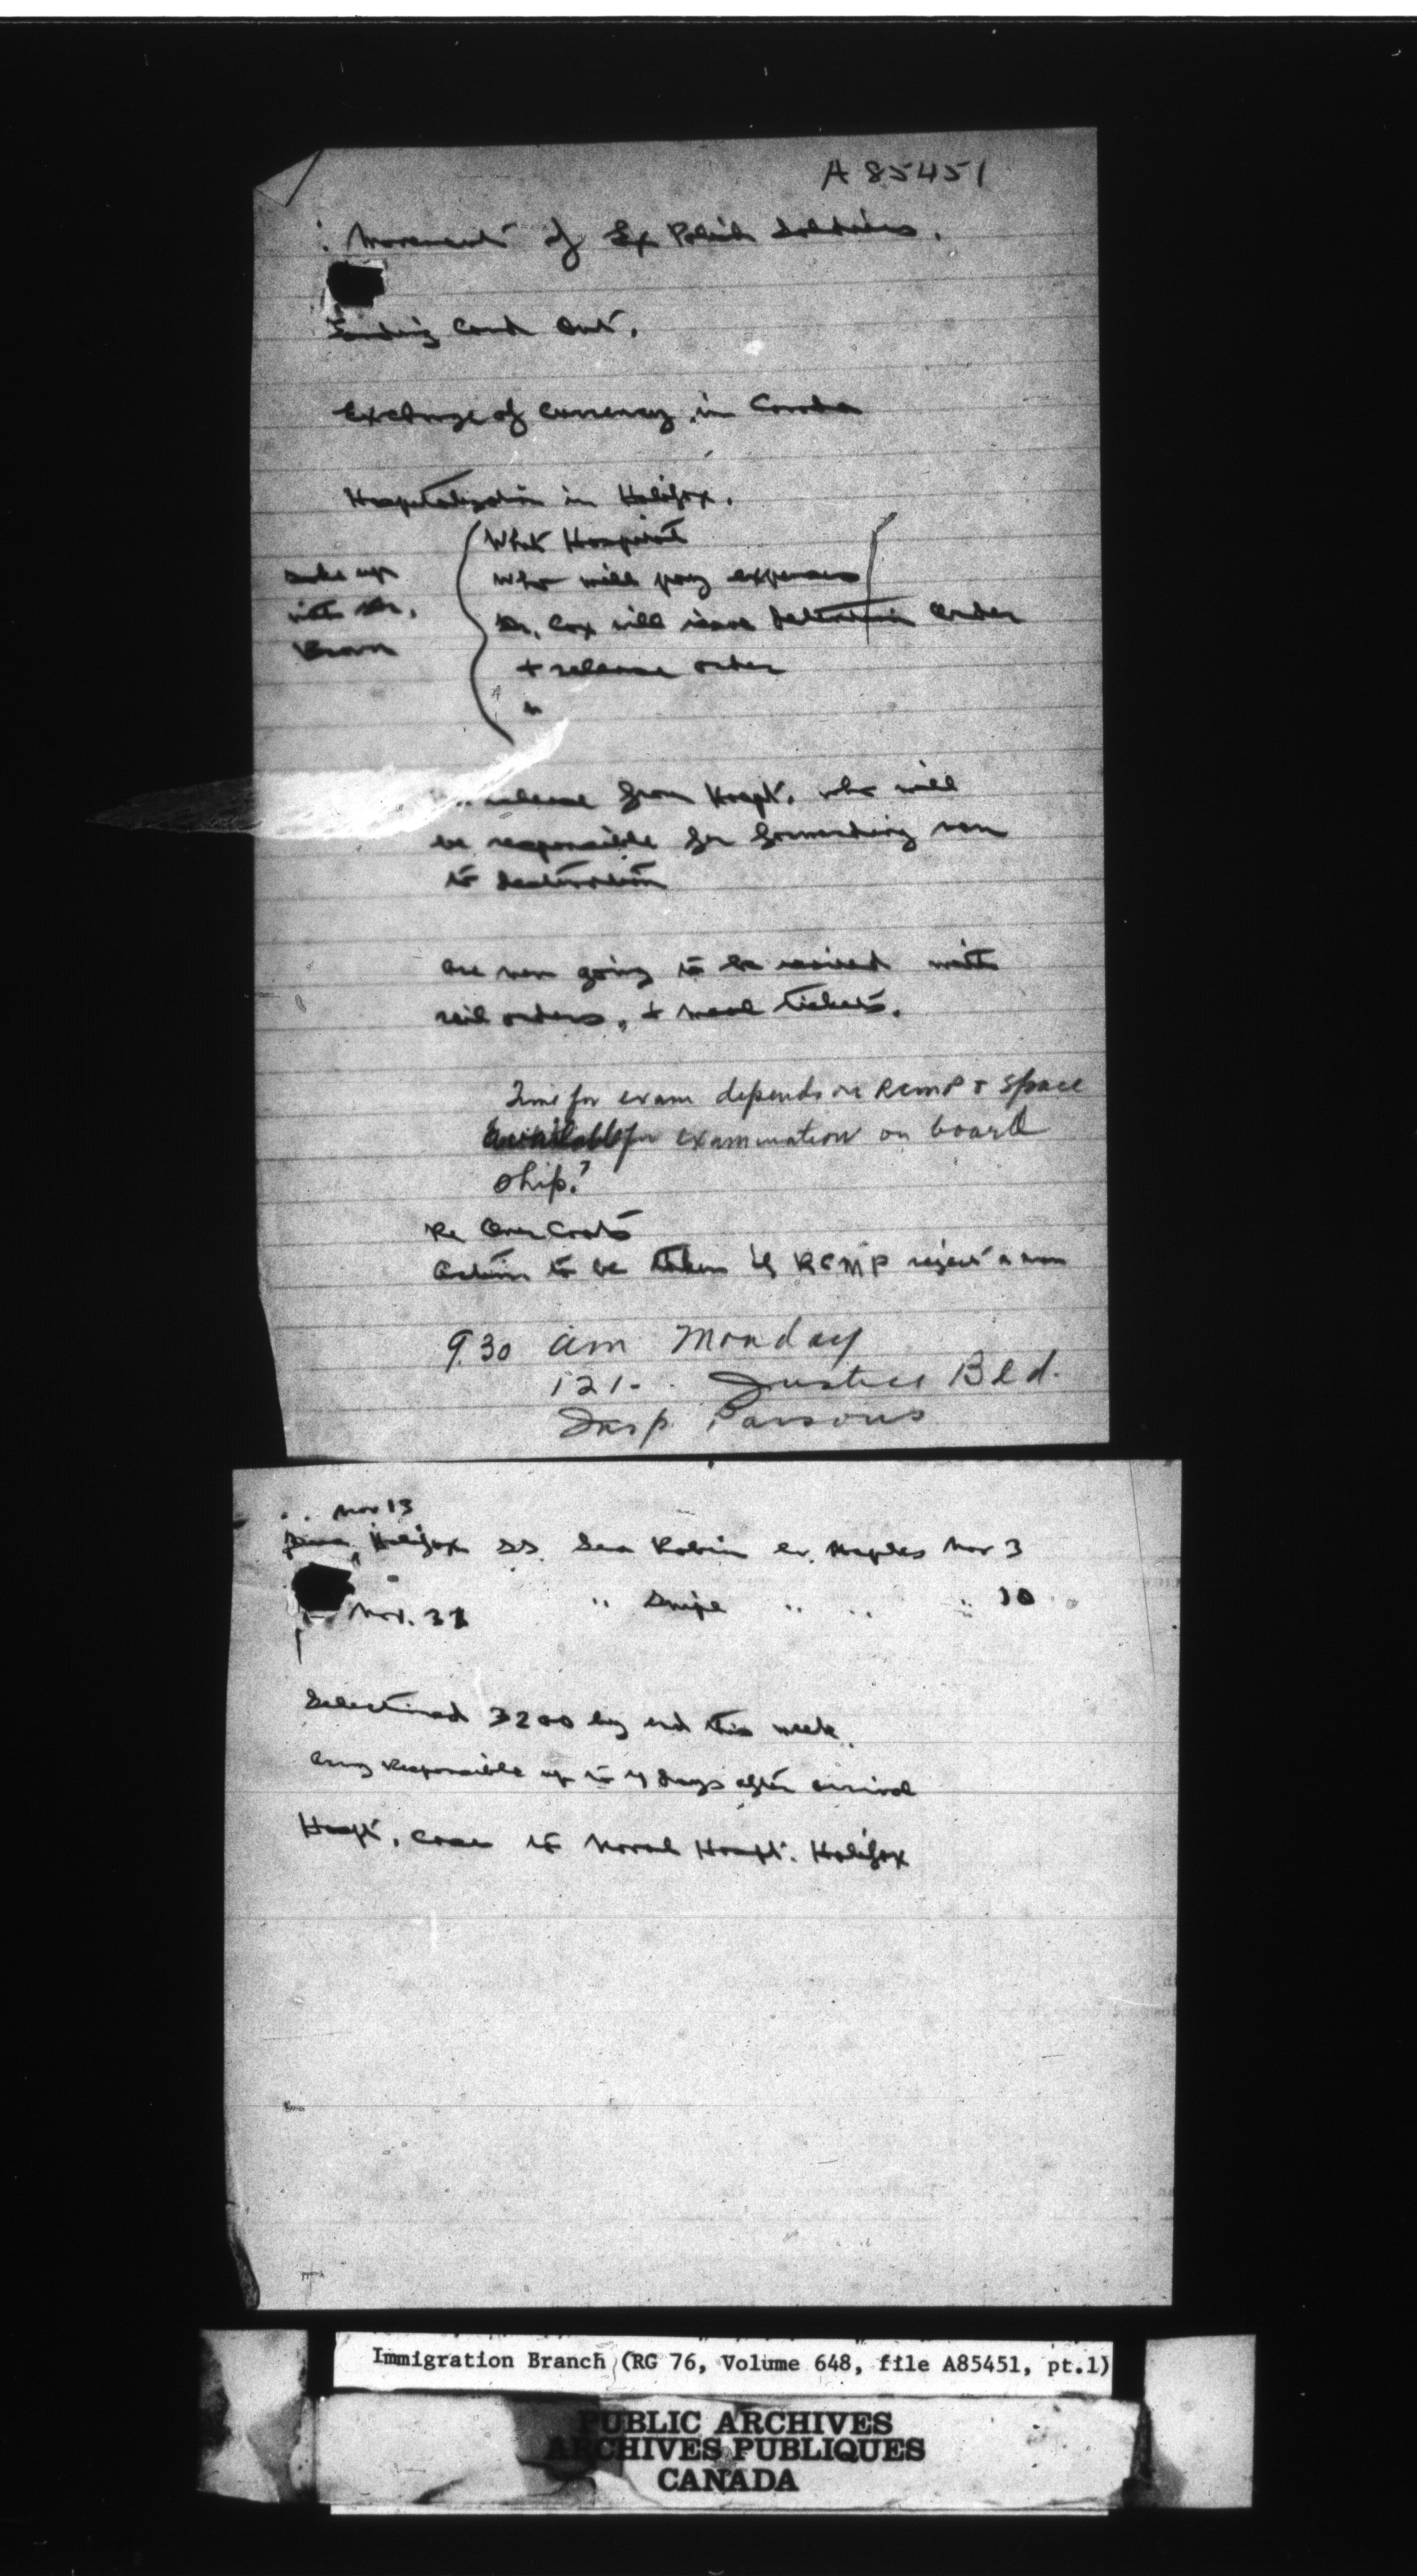 A 85451
Movement of Ex Polish Soldiers.
Landing Card Out.
Exchange of Currency in Canada
Hospitalization in Halifax.
What Hospital
take up
who will pay expenses
with Dr.
Dr. Cox will issue Detention Order
Brown
+ release order
release from Hospt. who will
be responsible for forwarding man
to destination
are men going to be issued with
rail orders, + meal tickets.
Time for exam depends on RCMP + Space
available for examination on board
ship?
Re Over Coats
Action to be taken if RCMP reject a man
9.30 am Monday
121 - Justice Bld.
Insp. Parsons
Nov 13
Halifax SS. Sea Robin lv. Naples Nov 3
Nov. " Snipe " " " 10
3200 by end this week.
Army Responsible up to days after arrival
Hospt. cases to Naval Hospt. Halifax
Immigration Branch (RG 76, Volume 648, file A85451, pt.1)
PUBLIC ARCHIVES
ARCHIVES PUBLIQUES
CANADA